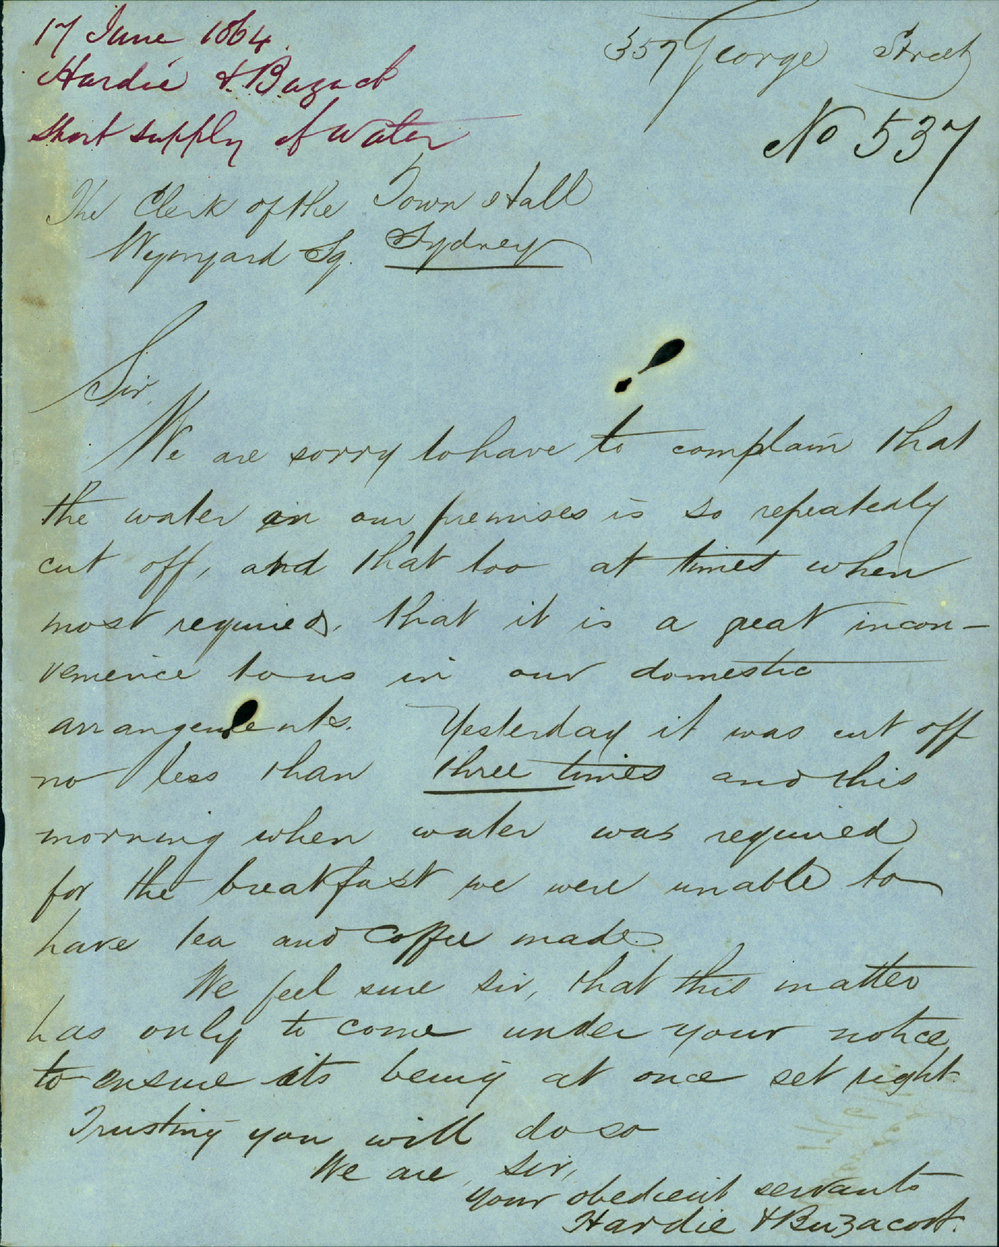 17 June 1864.
Hardie & Bazacot
short supply of water
357 George Street
No 537
The Clerk of the Town Hall
Wynyard Sq. Sydney
Sir,
We are sorry to have to complain that
the water on our premises is so repeatedly
cut off, and that too at times when
most required, that it is a great incon-
venience to us in our domestic
arrangements. Yesterday it was cut off
no less than three times and this
morning when water was required
for the breakfast we were unable to
have tea and coffee made.
We feel sure sir, that this matter
has only to come under your notice
to ensure its being at once set right.
Trusting you will do so
We are, Sir,
your obedient servants
Hardie & Buzacott.